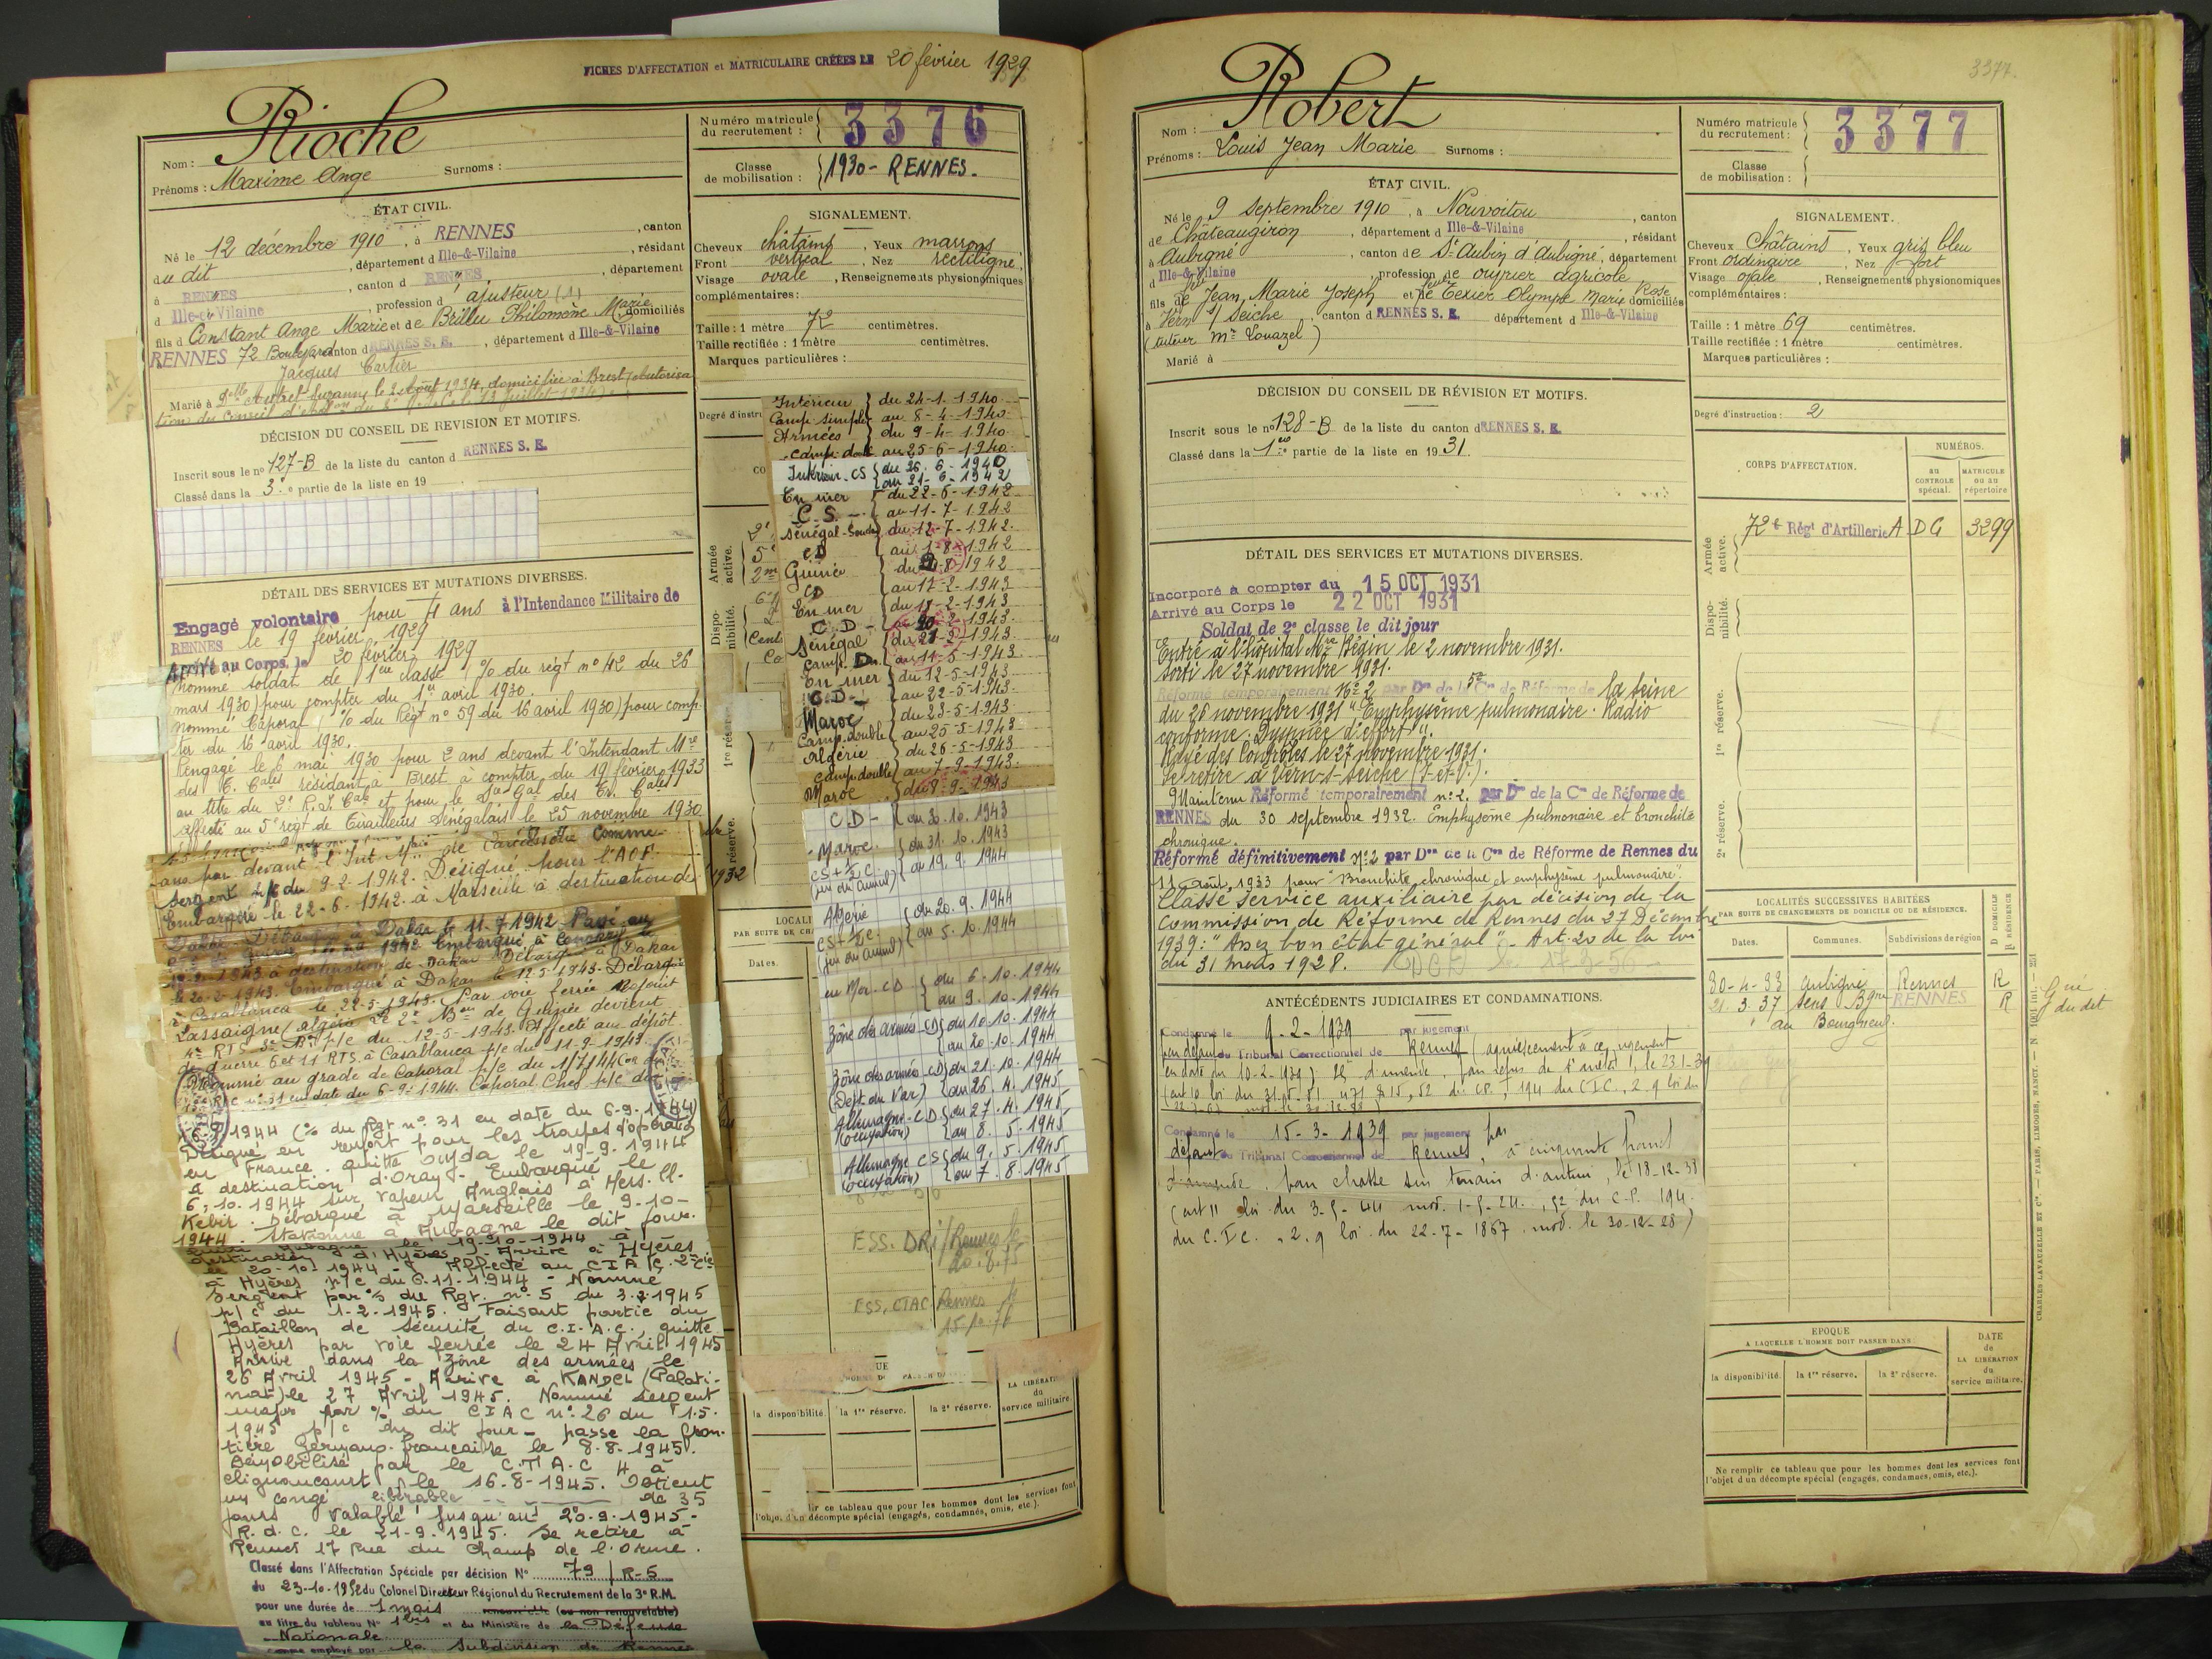 FICHES D'AFFECTATION et MATRICULAIRE CRÉÉES LE 20 février 1929
Nom : Rioche
Prénoms : Maxime Ange Surnoms :
Numéro matricule du recrutement : 3376
Classe de mobilisation : 1930 - RENNES.
ÉTAT CIVIL.
Né le 12 décembre 1910, à RENNES, canton
du dit, département d Ille-&-Vilaine, résidant
à RENNES, canton d RENNES, département
d Ille-et-Vilaine, profession d'ajusteur (1)
fils d Constant Ange Marie et de Brillu Philomène Marie domiciliés
RENNES 72 Boulevard canton d RENNES S. E., département d Ille-&-Vilaine
Jacques Cartier
Marié à Autret Suzanne le 2 Août 1934, domiciliée à Brest (autorisa
SIGNALEMENT.
Cheveux châtains, Yeux marrons
Front vertical, Nez rectiligne
Visage ovale, Renseignements physionomiques
complémentaires :
Taille : 1 mètre 72 centimètres.
Taille rectifiée : 1 mètre centimètres.
Marques particulières :
DÉCISION DU CONSEIL DE REVISION ET MOTIFS.
Inscrit sous le n° 127-B de la liste du canton d RENNES S. E.
Classé dans la 3e partie de la liste en 19
DÉTAIL DES SERVICES ET MUTATIONS DIVERSES.
Engagé volontaire pour 4 ans à l'Intendance Militaire de
RENNES le 19 février 1929
Arrivé au Corps le 20 février 1929
Nommé soldat de 1ère classe (% du régt n° 42 du 26
mars 1930) pour compter du 1er avril 1930.
Nommé Caporal (% du Régt n° 59 du 16 avril 1930) pour comp-
ter du 16 avril 1930.
Rengagé le 6 mai 1930 pour 2 ans devant l'Intendant Mre
des T. Cales résidant à Brest à compter du 19 février 1933
au titre du 2e R.I. Cal et pour le des Tr. Cales
affecté au 5e régt de Tirailleurs Sénégalais le 25 novembre 1930
ans par devant l'Int. Mre de Carcassonne Comme
Sergent p/c du 9-2-1942. Désigné pour l'AOF.
Embarqué le 22-6-1942 à Marseille à destination de
Dakar. Débarqué à Dakar le 11-7-1942. Passé au
1942. Embarqué à Conakry le
1943 à destination de Dakar. Débarqué à Dakar
le 20-2-1943. Embarqué à Dakar le 12-5-1943. Débarqué
à Casablanca le 22-5-1943. Par voie ferrée rejoint
Lassaigne (Algérie). Le 2e Bon de Guinée devient
4e RTS 3e Bon p/c du 12-5-1943. Affecté au dépôt
de guerre 6 et 11 RTS à Casablanca p/c du 11-9-1943.
Nommé au grade de Caporal p/c du 1/7/44
n° 31 en date du 6-9-1944. Caporal Chef p/c du
1944 (% du Rgt n° 31 en date du 6-9-1944)
Désigné en renfort pour les troupes d'opérations
en France. Quitte Oujda le 19-9-1944
à destination d'Oran - Embarqué le
6.10.1944 sur vapeur Anglais à Mers-El-
Kébir. Débarqué à Marseille le 9-10-
1944. Stationné à Aubagne le dit jour.
Quitte Aubagne le 19-10-1944 à
destination d'Hyères - Arrive à Hyères
le 20-10-1944 - Affecté au CIAC. 2e Cie
à Hyères p/c du 6.11.1944 - Nommé
Sergent par % du Rgt. n° 5 du 3.2.1945
p/c du 1-2-1945. Faisant partie du
Bataillon de sécurité du C.I.A.C. quitte
Hyères par voie ferrée le 24 Avril 1945
Arrive dans la Zône des armées le
26 Avril 1945 - Arrive à KANDEL (Palati-
nat) le 27 Avril 1945. Nommé sergent
major par % du CIAC n° 26 du 1.5.
1945 p/c du dit jour - passe la fron-
tière Germano-française le 8-8-1945.
Démobilisé par le C.T.A.C 4 à
Clignancourt le 16-8-1945. Obtient
un congé libérable de 35
jours valable jusqu'au 20-9-1945 -
R.d.C. le 21-9-1945. Se retire à
Rennes 17 Rue du Champ de l'Orme.
Classé dans l'Affectation Spéciale par décision N° 79 / R-5
du 23-10-1952 du Colonel Directeur Régional du Recrutement de la 3e R.M.
pour une durée de 1 mois renouvelable (ou non renouvelable)
au titre du tableau N° 1 bis et du Ministère de la Défense
Nationale
comme employé par la Subdivision de Rennes
Degré d'instr
Armée active.
Disponibilité.
Intérieur Camp. simple du 24-1-1940 au 8-4-1940
Armées Camp. double du 9-4-1940 au 25-6-1940
Intérieur - CS du 26-6-1940 au 21-6-1942
En mer C.S. du 22-6-1942 au 11-7-1942
Sénégal-Soudan CD du 12-7-1942 au 1-8-1942
Guinée CD du 2-8-1942 au 17-2-1943
En mer C.D du 18-2-1943 au 20-2-1943
Sénégal Camp. D. du 21-2-1943 au 11-5-1943
En mer C.D du 12-5-1943 au 22-5-1943
Maroc Camp. double du 23-5-1943 au 25-5-1943
Algérie camp. double du 26-5-1943 au 7-9-1943
Maroc du 8-9-1943
CD - au 30.10.1943
Maroc. CS + 1/2 C. du 31.10.1943 au 19.9.1944
Algérie CS + 1/2 C. du 20.9.1944 au 5.10.1944
en Mer - CD du 6-10-1944 au 9.10.1944
Zône des armées - CD du 10.10.1944 au 20.10.1944
Zône des armées - CD (Dept du Var) du 21.10.1944 au 26.4.1945
Allemagne - C.D (occupation) du 27.4.1945 au 8.5.1945
Allemagne CS (occupation) du 9.5.1945 au 7.8.1945
ESS. DRi/Rennes le
ESS. CTAC Rennes le
LOCALI
PAR SUITE DE CH
Dates.
la disponibilité. la 1re réserve. la 2e réserve. LA LIBÉRATION du service militaire.
lir ce tableau que pour les hommes dont les services font
l'objet d'un décompte spécial (engagés, condamnés, omis, etc.).
3377.
Nom : Robert
Prénoms : Louis Jean Marie Surnoms :
Numéro matricule du recrutement : 3377
Classe de mobilisation :
ÉTAT CIVIL.
Né le 9 Septembre 1910, à Nouvoitou, canton
de Châteaugiron, département d Ille-&-Vilaine, résidant
à Aubigné, canton de St Aubin d'Aubigné, département
d Ille-&-Vilaine, profession de ouvrier agricole
fils de feu Jean Marie Joseph et de feue Texier Olympe Marie Rose domiciliés
à Vern s/ Seiche, canton d RENNES S. E. département d Ille-&-Vilaine
(tuteur Mr Louazel)
Marié à
SIGNALEMENT.
Cheveux Châtains, Yeux gris bleu
Front ordinaire, Nez fort
Visage ovale, Renseignements physionomiques
complémentaires :
Taille : 1 mètre 69 centimètres.
Taille rectifiée : 1 mètre centimètres.
Marques particulières :
Degré d'instruction : 2
DÉCISION DU CONSEIL DE RÉVISION ET MOTIFS.
Inscrit sous le n° 128-B de la liste du canton d RENNES S. E.
Classé dans la 1ère partie de la liste en 1931.
CORPS D'AFFECTATION.
NUMÉROS.
au CONTROLE spécial. MATRICULE ou au répertoire
Armée active. 72e Régt d'Artillerie A DC 3299
Disponibilité.
1re réserve.
2e réserve.
DÉTAIL DES SERVICES ET MUTATIONS DIVERSES.
Incorporé à compter du 15 OCT 1931
Arrivé au Corps le 22 OCT 1931
Soldat de 2e classe le dit jour
Entré à l'hôpital Mre Bégin le 2 novembre 1931.
Sorti le 27 novembre 1931.
Réformé temporairement N° 2 par Don de la 5e Con de Réforme de la Seine
du 26 novembre 1931 "Emphysème pulmonaire. Radio
conforme. Dyspnée d'effort".
Rayé des Contrôles le 27 novembre 1931.
Se retire à Vern-s-Seiche (I-et-V.).
Maintenu Réformé temporairement n° 2. par Don de la Con de Réforme de
RENNES du 30 septembre 1932. Emphysème pulmonaire et bronchite
chronique.
Réformé définitivement N° 2 par Don de la Con de Réforme de Rennes du
11 Août 1933 pour "Bronchite chronique et emphysème pulmonaire".
Classé service auxiliaire par décision de la
Commission de Réforme de Rennes du 27 Décembre
1939 : "Assez bon état général" - Art. 20 de la loi
du 31 mars 1928.
ANTÉCÉDENTS JUDICIAIRES ET CONDAMNATIONS.
Condamné le 9-2-1939 par jugement
par défaut du Tribunal Correctionnel de Rennes (acquiescement à ce jugement
en date du 10-2-1939)
Condamné le 15-3-1939 par jugement par
défaut du Tribunal Correctionnel de Rennes, à cinquante francs
d'amende, pour chasse sur terrain d'autrui, le 18-12-38
(art 11 loi du 3-5-44 mod. 1-5-24, 52 du C.P. 194
du C.I.C. 2.9 loi du 22-7-1867 mod. le 30-12-28)
LOCALITÉS SUCCESSIVES HABITÉES
PAR SUITE DE CHANGEMENTS DE DOMICILE OU DE RÉSIDENCE.
Dates. Communes. Subdivisions de région D DOMICILE R RÉSIDENCE
30-4-33 Aubigné Rennes R
21.3.37 Sens Bgne RENNES R
au Bourgneuf.
EPOQUE
A LAQUELLE L'HOMME DOIT PASSER DANS :
la disponibilité. la 1re réserve. la 2e réserve.
DATE de LA LIBÉRATION du service militaire.
Ne remplir ce tableau que pour les hommes dont les services font
l'objet d'un décompte spécial (engagés, condamnés, omis, etc.).
CHARLES-LAVAUZELLE ET Cie. — PARIS, LIMOGES, NANCY.